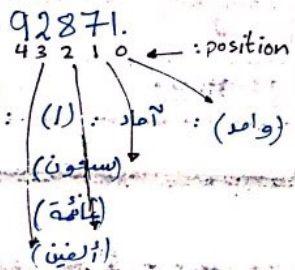 92871.
4 3 2 1 0 ← : position
: (1) : آحاد : (واحد)
(سبعون)
(ألفين)